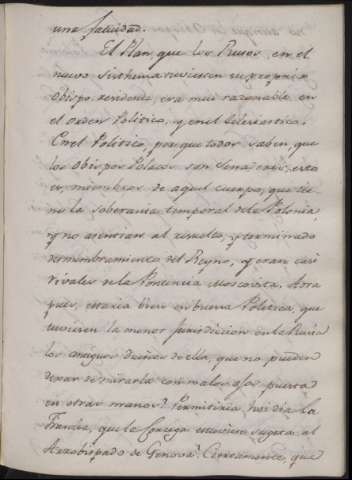 una fatuidad.
El Plan que los Rusos, en el
nuevo Sisthema tuviesen su propio
Obispo residente, era mui razonable en
el orden Politico, y en el Eclesiastico.
En el Politico, porque todos saben, que
los Obispos Polacos son Senadores, esto
es, miembros de aquel cuerpo, que tie-
ne la soberania temporal de la Polonia,
y no asentian al resuelto, y terminado
desmembramiento del Reyno, y eran casi
rivales de la Potencia Moscovita. Aora
pues, estaria bien en buena Politica, que
tuviesen la menor jurisdiccion en la Rusia
los antiguos dueños de ella, que no pueden
dexar de mirarla con malos ojos puesta
en otras manos? Permitiria hoi dia la
Francia, que la Corcega estuviese sugeta al
Arzobispado de Genova? Ciertamente, que